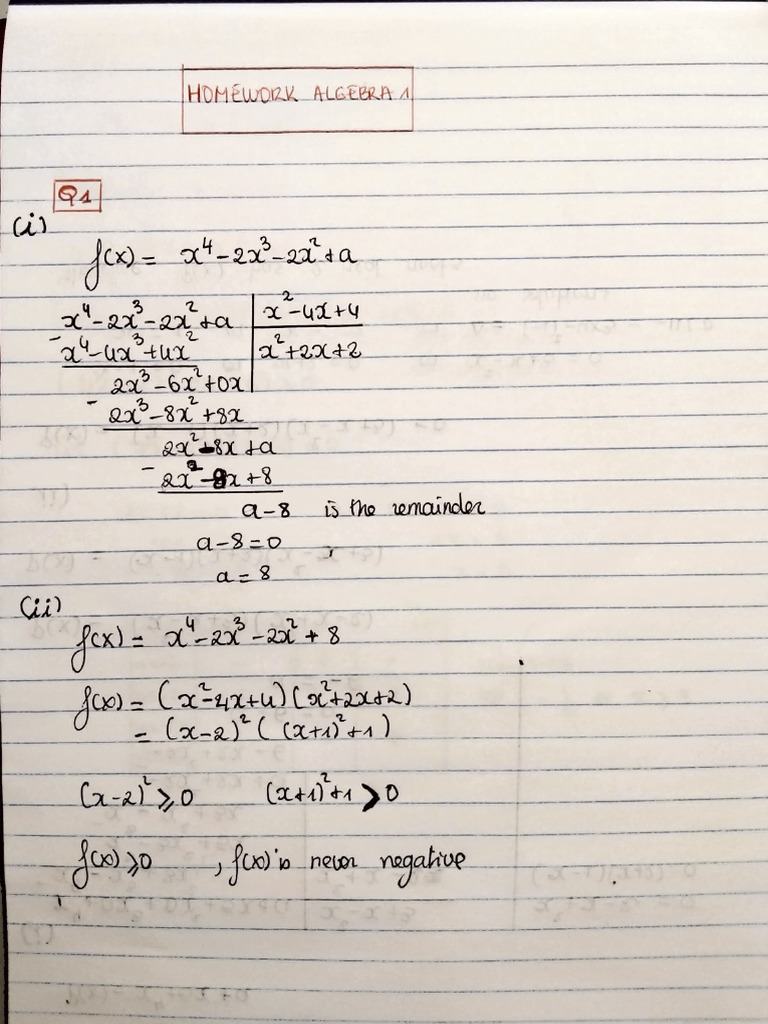 HOMEWORK ALGEBRA 1
Q1
(i)
f(x) = x⁴ - 2x³ - 2x² + a
x⁴ - 2x³ - 2x² + a | x² - 4x + 4
- x⁴ - 4x³ + 4x² | x² + 2x + 2
2x³ - 6x² + 0x
- 2x³ - 8x² + 8x
2x² - 8x + a
- 2x² - 8x + 8
a - 8 is the remainder
a - 8 = 0
a = 8
(ii)
f(x) = x⁴ - 2x³ - 2x² + 8
f(x) = (x² - 4x + 4)(x² + 2x + 2)
= (x-2)² ((x+1)² + 1)
(x-2)² ⩾ 0 (x+1)² + 1 > 0
f(x) ⩾ 0 , f(x) is never negative